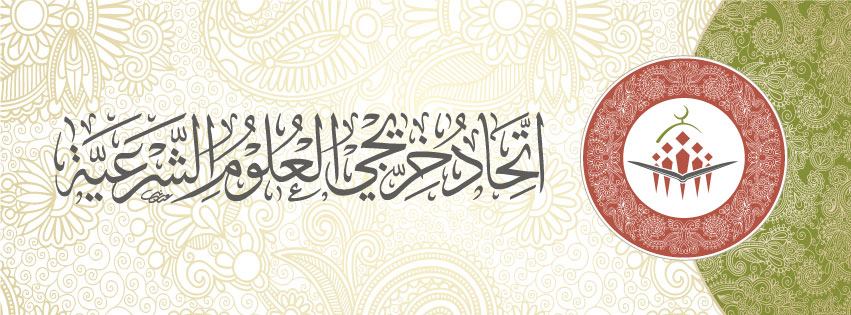 اتِّحَادُ خِرِّيجِي العُلُومِ الشَّرْعِيَّة